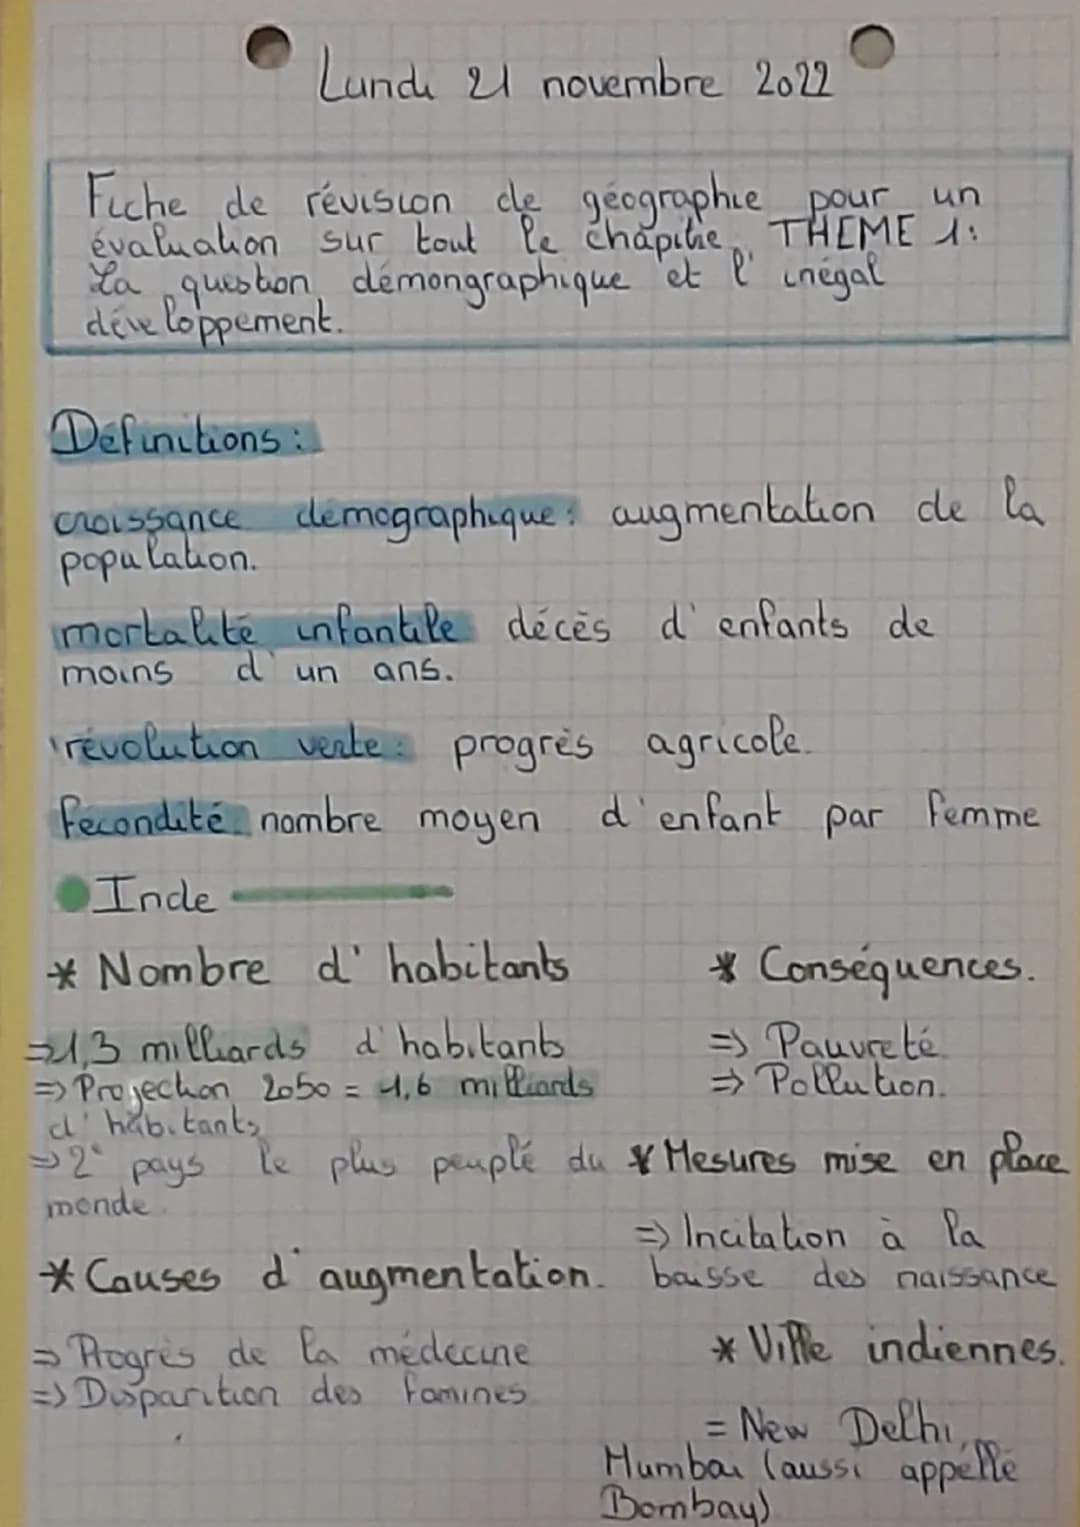 Lundi 21 novembre 2022
Fiche de révision de géographie pour un
évaluation sur tout le chapitre THEME 1:
La question démongraphique et l'inégal
développement.
Définitions :
croissance démographique: augmentation de la
population.
mortalité infantile décès d'enfants de
moins d'un ans.
révolution verte: progrès agricole.
fécondité: nombre moyen d'enfant par femme
Inde
* Nombre d'habitants
=>1,3 milliards d'habitants
=> Projection 2050 = 1,6 milliards
d'habitants
=> 2e pays le plus peuplé du
monde.
* Causes d'augmentation.
=> Progrès de la médecine
=> Disparition des famines
* Conséquences.
=> Pauvreté
=> Pollution.
* Mesures mise en place
=> Incitation à la
baisse des naissance
* Ville indiennes.
= New Delhi,
Mumbai (aussi appellé
Bombay)